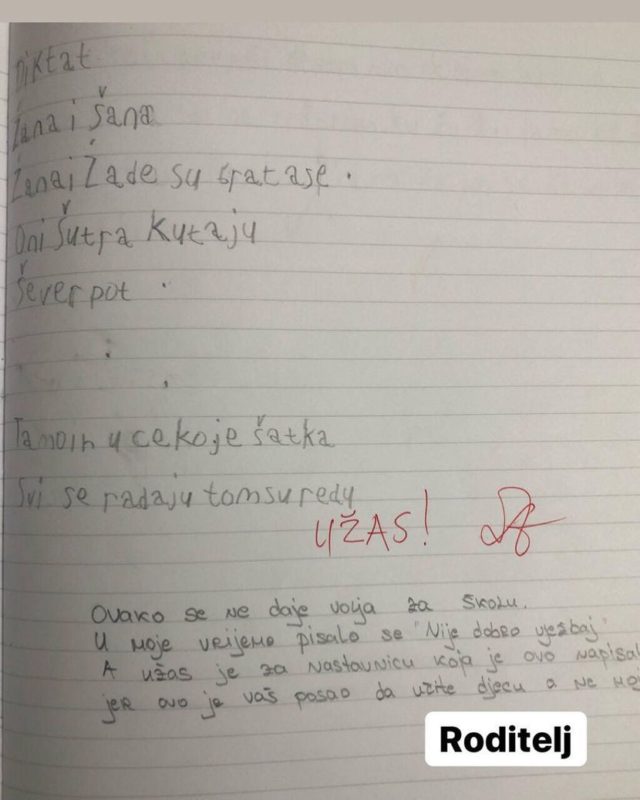 Diktat
Žana i Šana
Žana i Žade su bratase.
Oni Šutra kutaju
Šever pot.
Tamo ih uceko je šatka
Svi se radaju tomsuredu
UŽAS!
Ovako se ne daje volja za školu.
U moje vrijeme pisalo se "Nije dobro vježbaj"
A užas je za nastavnicu koja je ovo napisal
jer ovo je vaš posao da učite djecu a ne
Roditelj